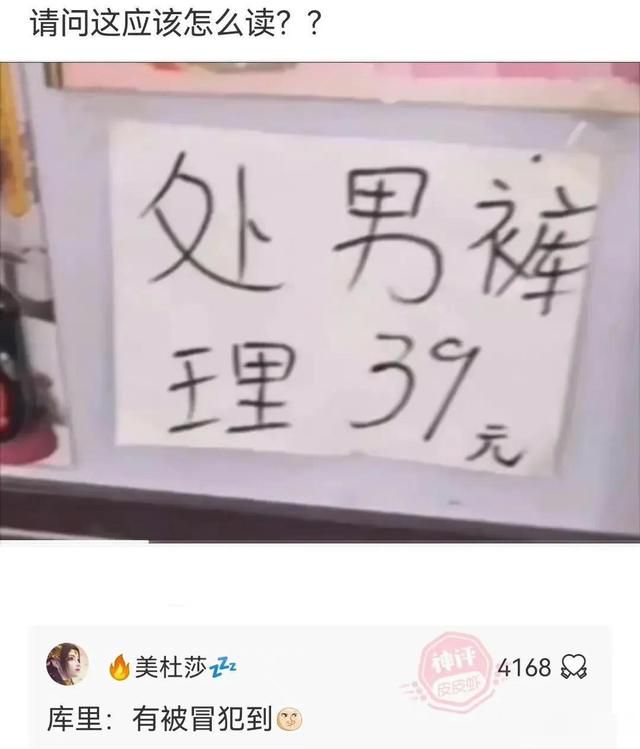 请问这应该怎么读？？
处男裤
理39元
🔥美杜莎💤
神评
皮皮虾
4168
库里：有被冒犯到🌝